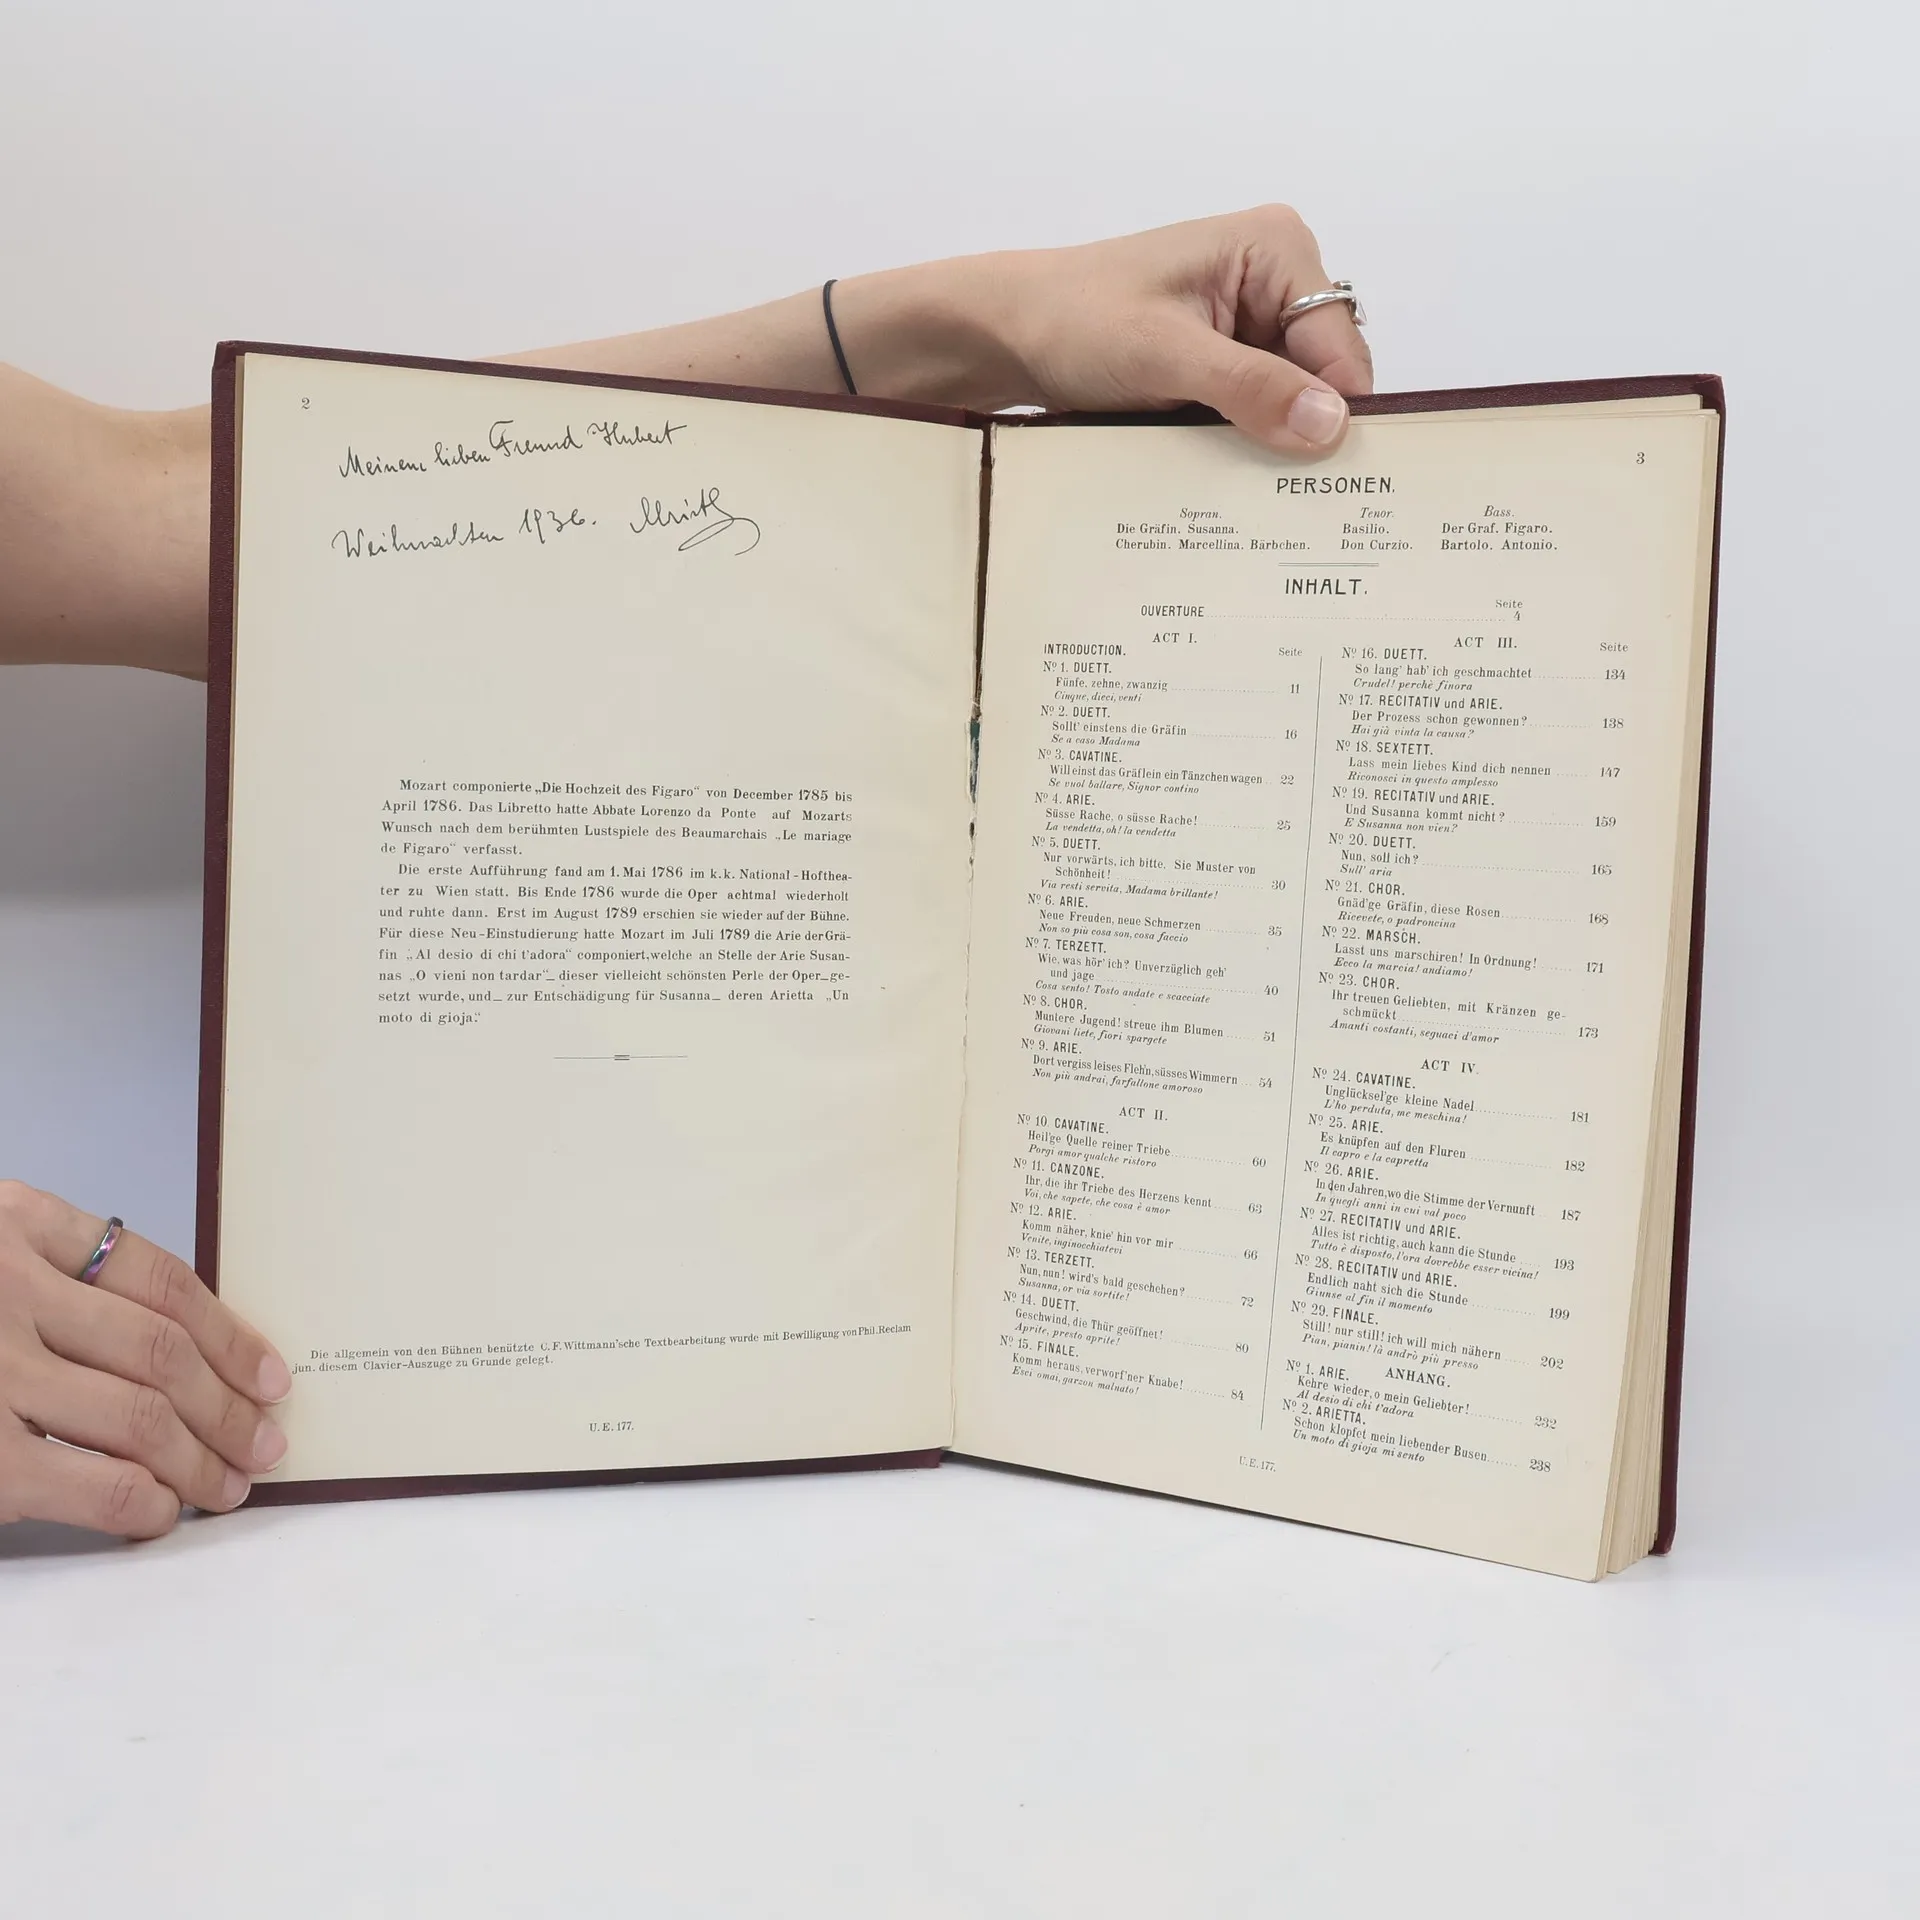 2
Meinem lieben Freund Hubert
Weihnachten 1936.
Mozart componierte „Die Hochzeit des Figaro“ von December 1785 bis
April 1786. Das Libretto hatte Abbate Lorenzo da Ponte auf Mozarts
Wunsch nach dem berühmten Lustspiele des Beaumarchais „Le mariage
de Figaro“ verfasst.
Die erste Aufführung fand am 1. Mai 1786 im k.k. National-Hofthea-
ter zu Wien statt. Bis Ende 1786 wurde die Oper achtmal wiederholt
und ruhte dann. Erst im August 1789 erschien sie wieder auf der Bühne.
Für diese Neu-Einstudierung hatte Mozart im Juli 1789 die Arie der Grä-
fin „Al desio di chi t'adora“ componiert, welche an Stelle der Arie Susan-
nas „O vieni non tardar“_ dieser vielleicht schönsten Perle der Oper_ge-
setzt wurde, und_ zur Entschädigung für Susanna_ deren Arietta „Un
moto di gioja.“
Die allgemein von den Bühnen benützte C. F. Wittmann'sche Textbearbeitung wurde mit Bewilligung von Phil. Reclam
jun. diesem Clavier-Auszuge zu Grunde gelegt.
U. E. 177.
3
PERSONEN.
Sopran. Tenor. Bass.
Die Gräfin. Susanna. Basilio. Der Graf. Figaro.
Cherubin. Marcellina. Bärbchen. Don Curzio. Bartolo. Antonio.
INHALT.
Seite
OUVERTURE 4
ACT I.
INTRODUCTION. Seite
Nº 1. DUETT.
Fünfe, zehne, zwanzig 11
Cinque, dieci, venti
Nº 2. DUETT.
Sollt' einstens die Gräfin 16
Se a caso Madama
Nº 3. CAVATINE.
Will einst das Gräflein ein Tänzchen wagen 22
Se vuol ballare, Signor contino
Nº 4. ARIE.
Süsse Rache, o süsse Rache! 25
La vendetta, oh! la vendetta
Nº 5. DUETT.
Nur vorwärts, ich bitte, Sie Muster von
Schönheit! 30
Via resti servita, Madama brillante!
Nº 6. ARIE.
Neue Freuden, neue Schmerzen 35
Non so più cosa son, cosa faccio
Nº 7. TERZETT.
Wie, was hör' ich? Unverzüglich geh'
und jage 40
Cosa sento! Tosto andate e scacciate
Nº 8. CHOR.
Muntere Jugend! streue ihm Blumen 51
Giovani liete, fiori spargete
Nº 9. ARIE.
Dort vergiss leises Fleh'n, süsses Wimmern 54
Non più andrai, farfallone amoroso
ACT II.
Nº 10. CAVATINE.
Heil'ge Quelle reiner Triebe 60
Porgi amor qualche ristoro
Nº 11. CANZONE.
Ihr, die ihr Triebe des Herzens kennt 63
Voi, che sapete, che cosa è amor
Nº 12. ARIE.
Komm näher, knie' hin vor mir 66
Venite, inginocchiatevi
Nº 13. TERZETT.
Nun, nun! wird's bald geschehen? 72
Susanna, or via sortite!
Nº 14. DUETT.
Geschwind, die Thür geöffnet! 80
Aprite, presto aprite!
Nº 15. FINALE.
Komm heraus, verworf'ner Knabe! 84
Esci omai, garzon malnato!
ACT III. Seite
Nº 16. DUETT.
So lang' hab' ich geschmachtet 134
Crudel! perchè finora
Nº 17. RECITATIV und ARIE.
Der Prozess schon gewonnen? 138
Hai già vinta la causa?
Nº 18. SEXTETT.
Lass mein liebes Kind dich nennen 147
Riconosci in questo amplesso
Nº 19. RECITATIV und ARIE.
Und Susanna kommt nicht? 159
E Susanna non vien?
Nº 20. DUETT.
Nun, soll ich? 165
Sull' aria
Nº 21. CHOR.
Gnäd'ge Gräfin, diese Rosen 168
Ricevete, o padroncina
Nº 22. MARSCH.
Lasst uns marschiren! In Ordnung! 171
Ecco la marcia! andiamo!
Nº 23. CHOR.
Ihr treuen Geliebten, mit Kränzen ge-
schmückt 173
Amanti costanti, seguaci d'amor
ACT IV.
Nº 24. CAVATINE.
Unglücksel'ge kleine Nadel 181
L'ho perduta, me meschina!
Nº 25. ARIE.
Es knüpfen auf den Fluren 182
Il capro e la capretta
Nº 26. ARIE.
In den Jahren, wo die Stimme der Vernunft 187
In quegli anni in cui val poco
Nº 27. RECITATIV und ARIE.
Alles ist richtig, auch kann die Stunde 193
Tutto è disposto, l'ora dovrebbe esser vicina!
Nº 28. RECITATIV und ARIE.
Endlich naht sich die Stunde 199
Giunse al fin il momento
Nº 29. FINALE.
Still! nur still! ich will mich nähern 202
Pian, pianin! là andrò più presso
ANHANG.
Nº 1. ARIE.
Kehre wieder, o mein Geliebter! 232
Al desio di chi t'adora
Nº 2. ARIETTA.
Schon klopfet mein liebender Busen 238
Un moto di gioja mi sento
U. E. 177.